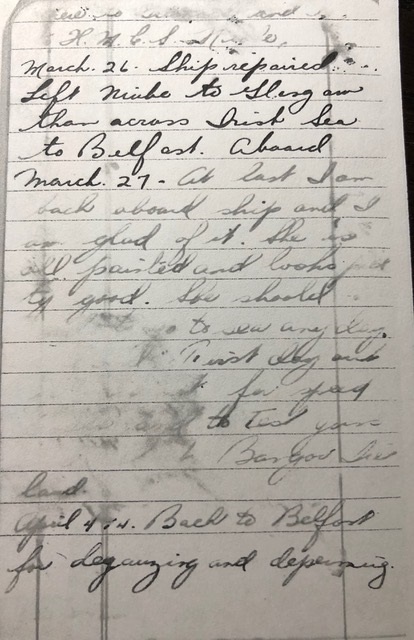 and
H. M. C. S.
March. 26. Ship repaired....
Left Niobe to Glasgow
than across Irish Sea
to Belfast. Aboard
March. 27 - At last I am
back aboard ship and I
am glad of it. She is
all painted and looks
ty good. She should
to sea any day.
First day out
for speed
and to test guns
Bangor Ire
land.
April 4th. Back to Belfast
for degauzing and deperming.